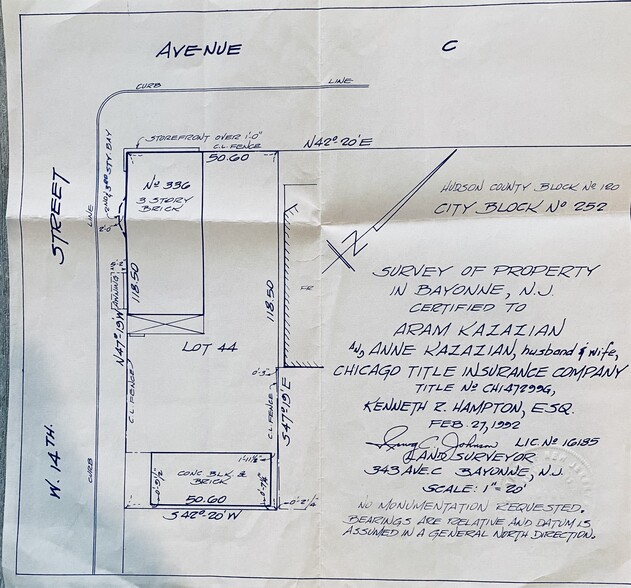 AVENUE C
CURB LINE
STOREFRONT OVER 1'-0"
C.L. FENCE
N42°-20'E
50.60
2ND & 3RD STY. BAY
No 336
3 STORY
BRICK
STREET
LINE
AWNING
118.50
118.50
N47°-19'W
LOT 44
S47°-19'E
C.L. FENCE
C.L. FENCE
0'-3"
W. 14TH.
CURB
CONC. BLK. &
BRICK
50.60
0'-2¼"
S42°-20'W
HUDSON COUNTY BLOCK No 120
CITY BLOCK No 252
N
SURVEY OF PROPERTY
IN BAYONNE, N.J.
CERTIFIED TO
ARAM KAZAZIAN
AND ANNE KAZAZIAN, husband & wife,
CHICAGO TITLE INSURANCE COMPANY
TITLE No CH147299G,
KENNETH R. HAMPTON, ESQ.
FEB. 27, 1992
LIC. No 16185
LAND SURVEYOR
343 AVE C BAYONNE, N.J.
SCALE: 1"=20'
NO MONUMENTATION REQUESTED.
BEARINGS ARE RELATIVE AND DATUM IS
ASSUMED IN A GENERAL NORTH DIRECTION.